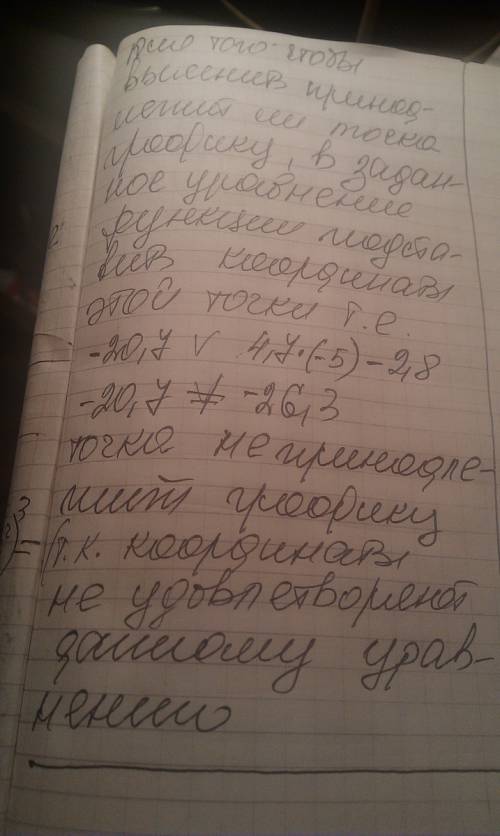 Для того чтобы
выяснить принад-
лежит ли точка
графику, в задан-
ное уравнение
функции подста-
вить координаты
этой точки т.е.
-20,7 ∨ 4,7·(-5)-2,8
-20,7 ≠ -26,3
точка не принадле-
жит графику
(т.к. координаты
не удовлетворяют
данному урав-
нению